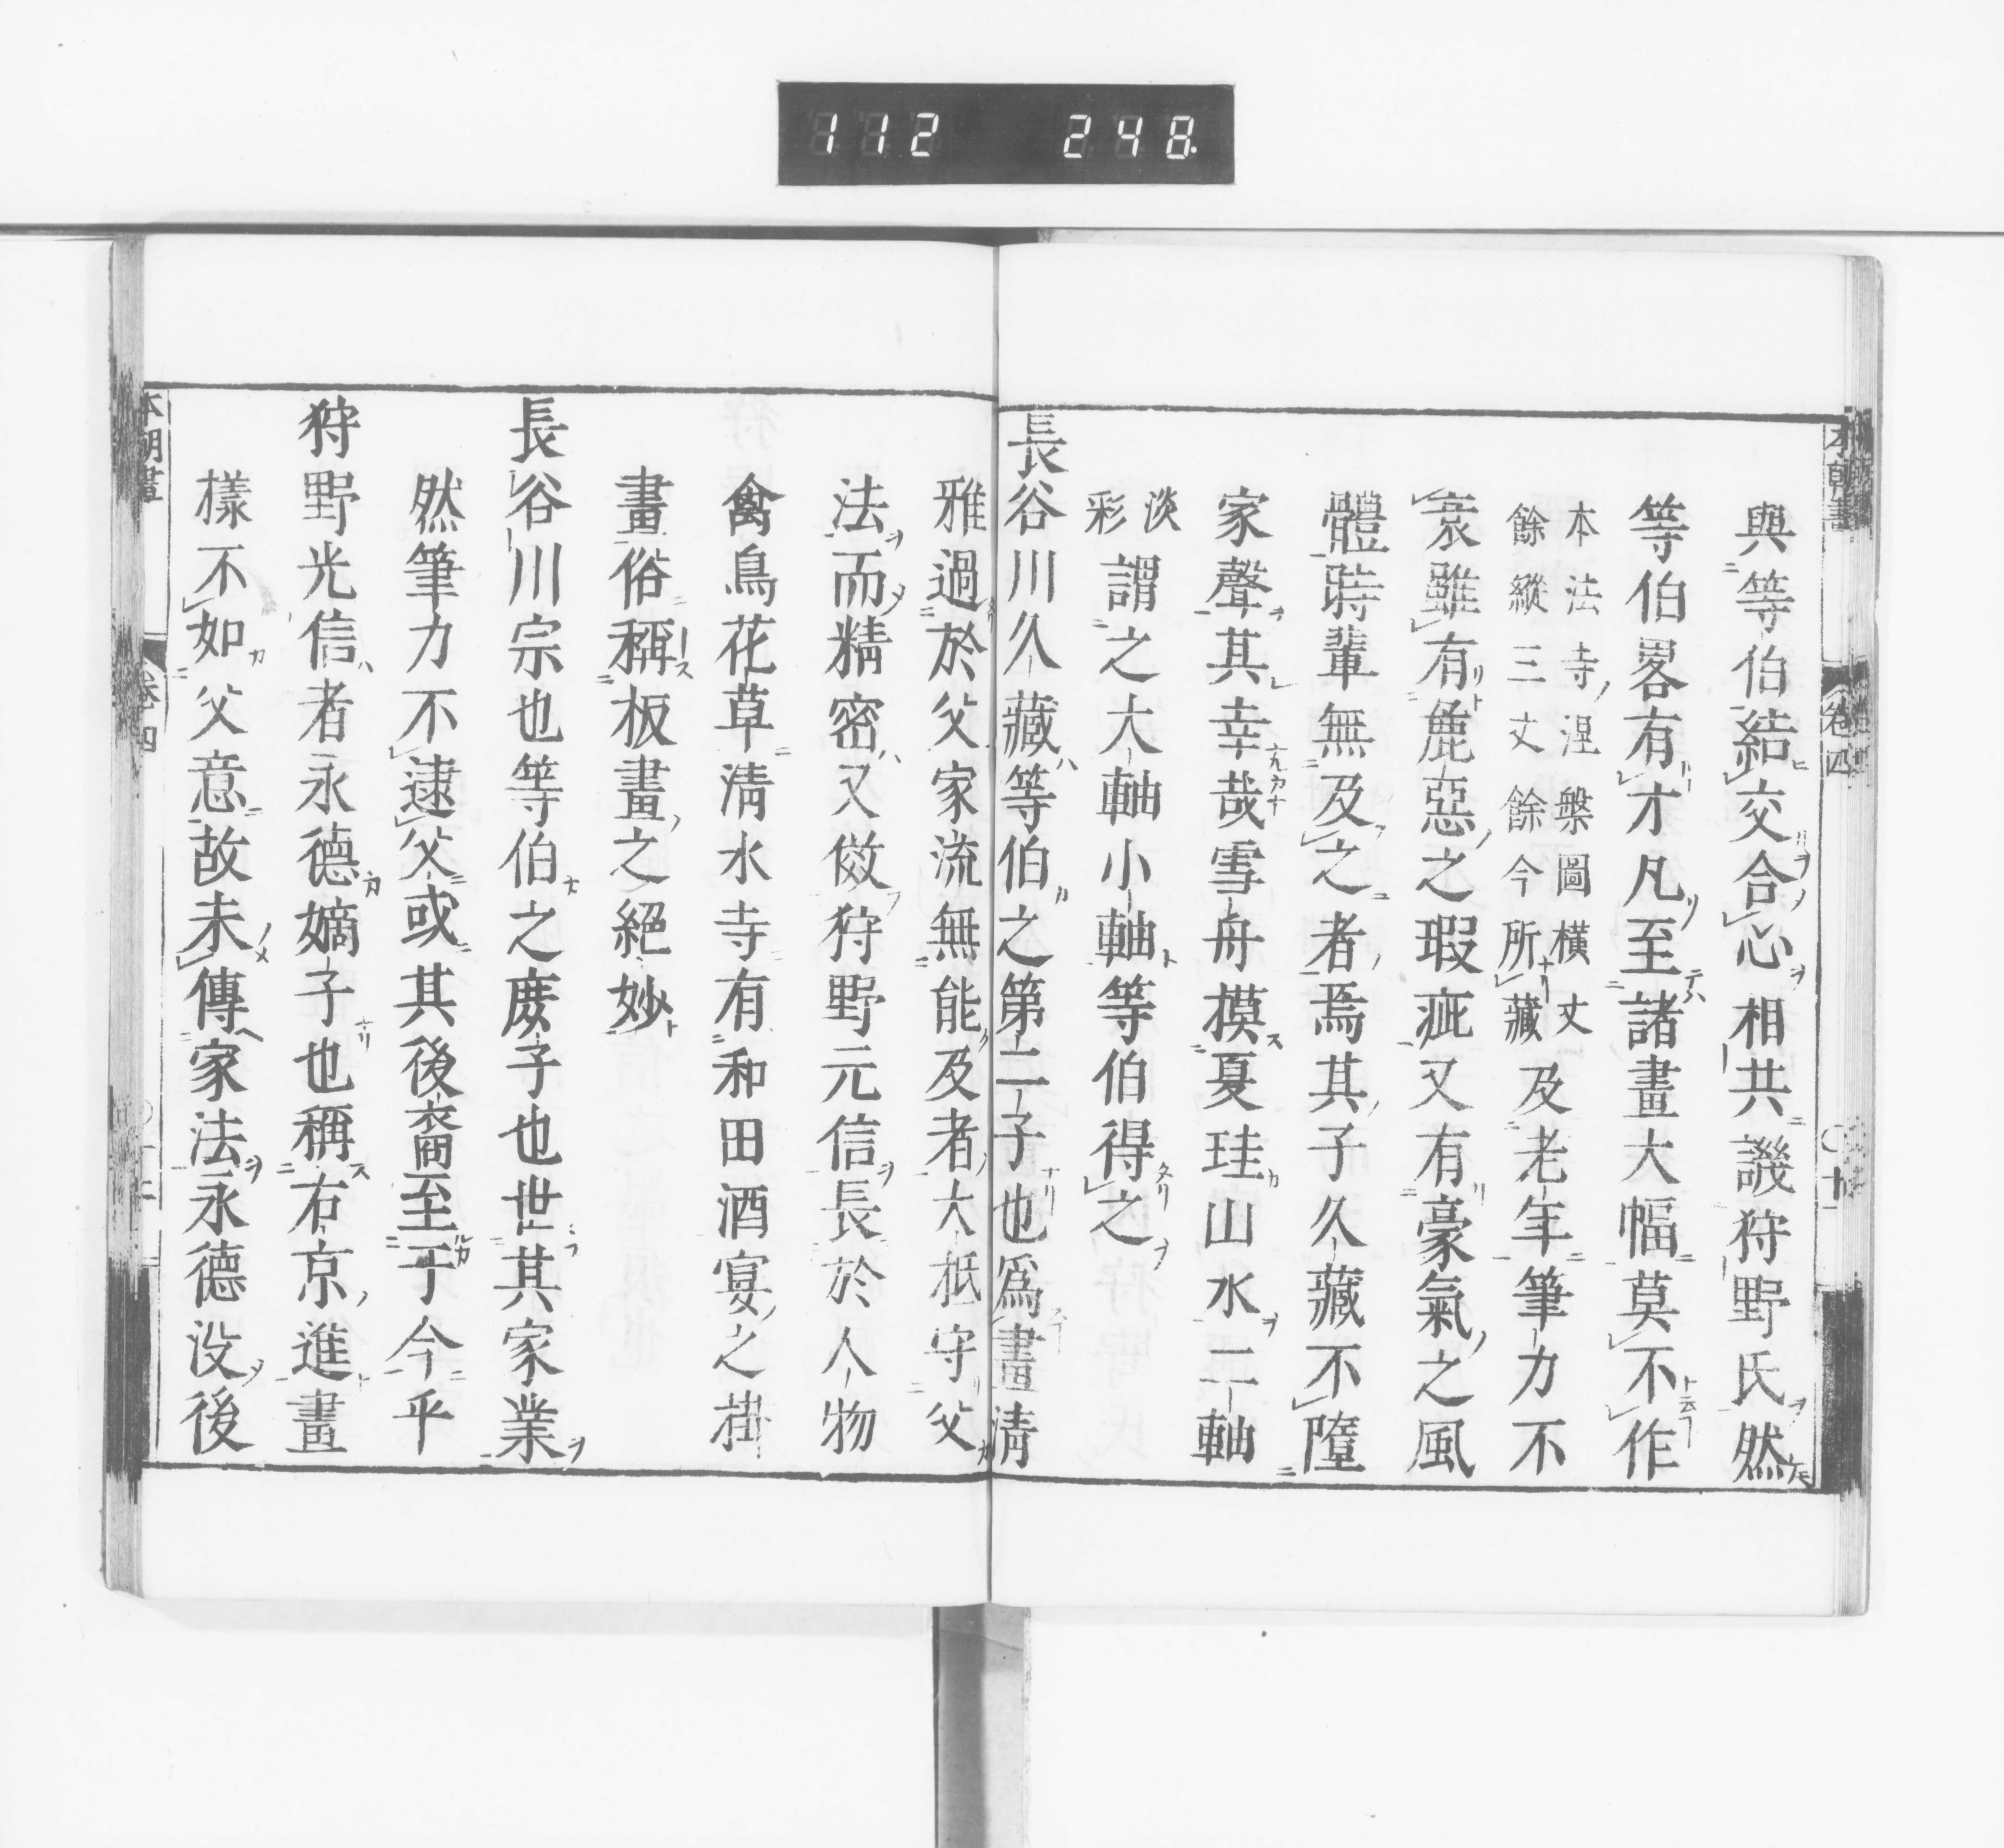 112 248
與等伯結交合心相共譏狩野氏然
等伯畧有才凡至諸畫大幅莫不作
本法寺涅槃圖橫丈
餘縱三丈餘今所藏
及老年筆力不
衰雖有麁惡之瑕疵又有豪氣之風
體時輩無及之者焉其子久藏不墮
家聲其幸哉雪舟摸夏珪山水二軸
淡
彩
謂之大軸小軸等伯得之
長谷川久藏等伯之第二子也爲畫淸
雅過於父家流無能及者大抵守父
法而精密又倣狩野元信長於人物
禽鳥花草淸水寺有和田酒宴之掛
畫俗稱板畫之絕妙
長谷川宗也等伯之庶子也世其家業
然筆力不逮父或其後裔至于今乎
狩野光信者永德嫡子也稱右京進畫
樣不如父意故未傳家法永德没後
本朝畫 卷四